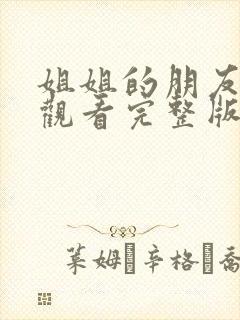 姐姐的朋友
觀看完整版
莱姆·辛格·喬